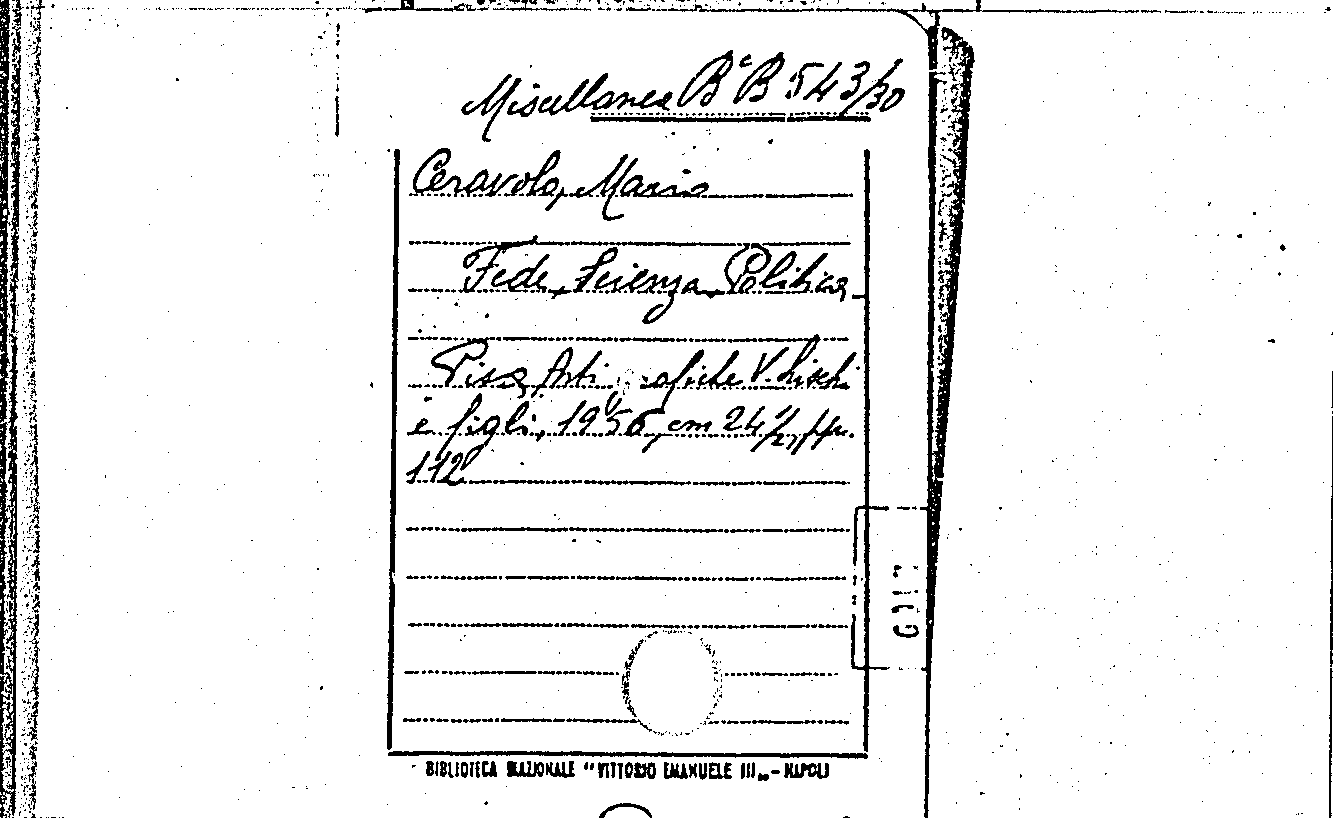 Miscellanea Bᶜ B 543/30
Ceravolo, Mario
Fede, Scienza, Politica,
Pisa, Arti Grafiche V. Lischi
e figli, 1956, cm 24 ½, pp.
112
BIBLIOTECA NAZIONALE "VITTORIO EMANUELE III„ - NAPOLI